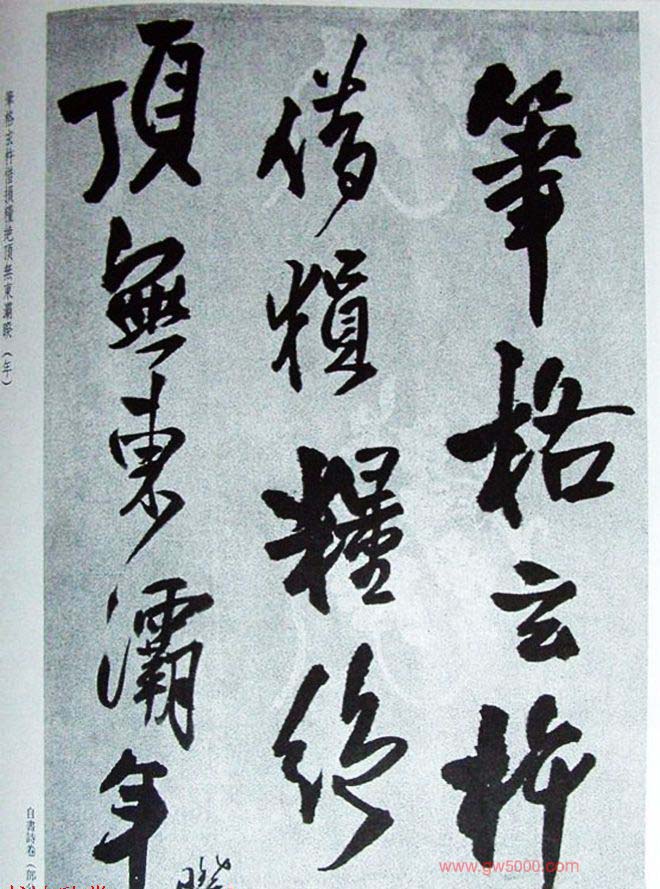 筆格玄杵
借損糧絶
頂無東灞年
睽
筆格玄杵借損糧絶頂無東灞睽（年）
自書詩卷（部
www.gw5000.com